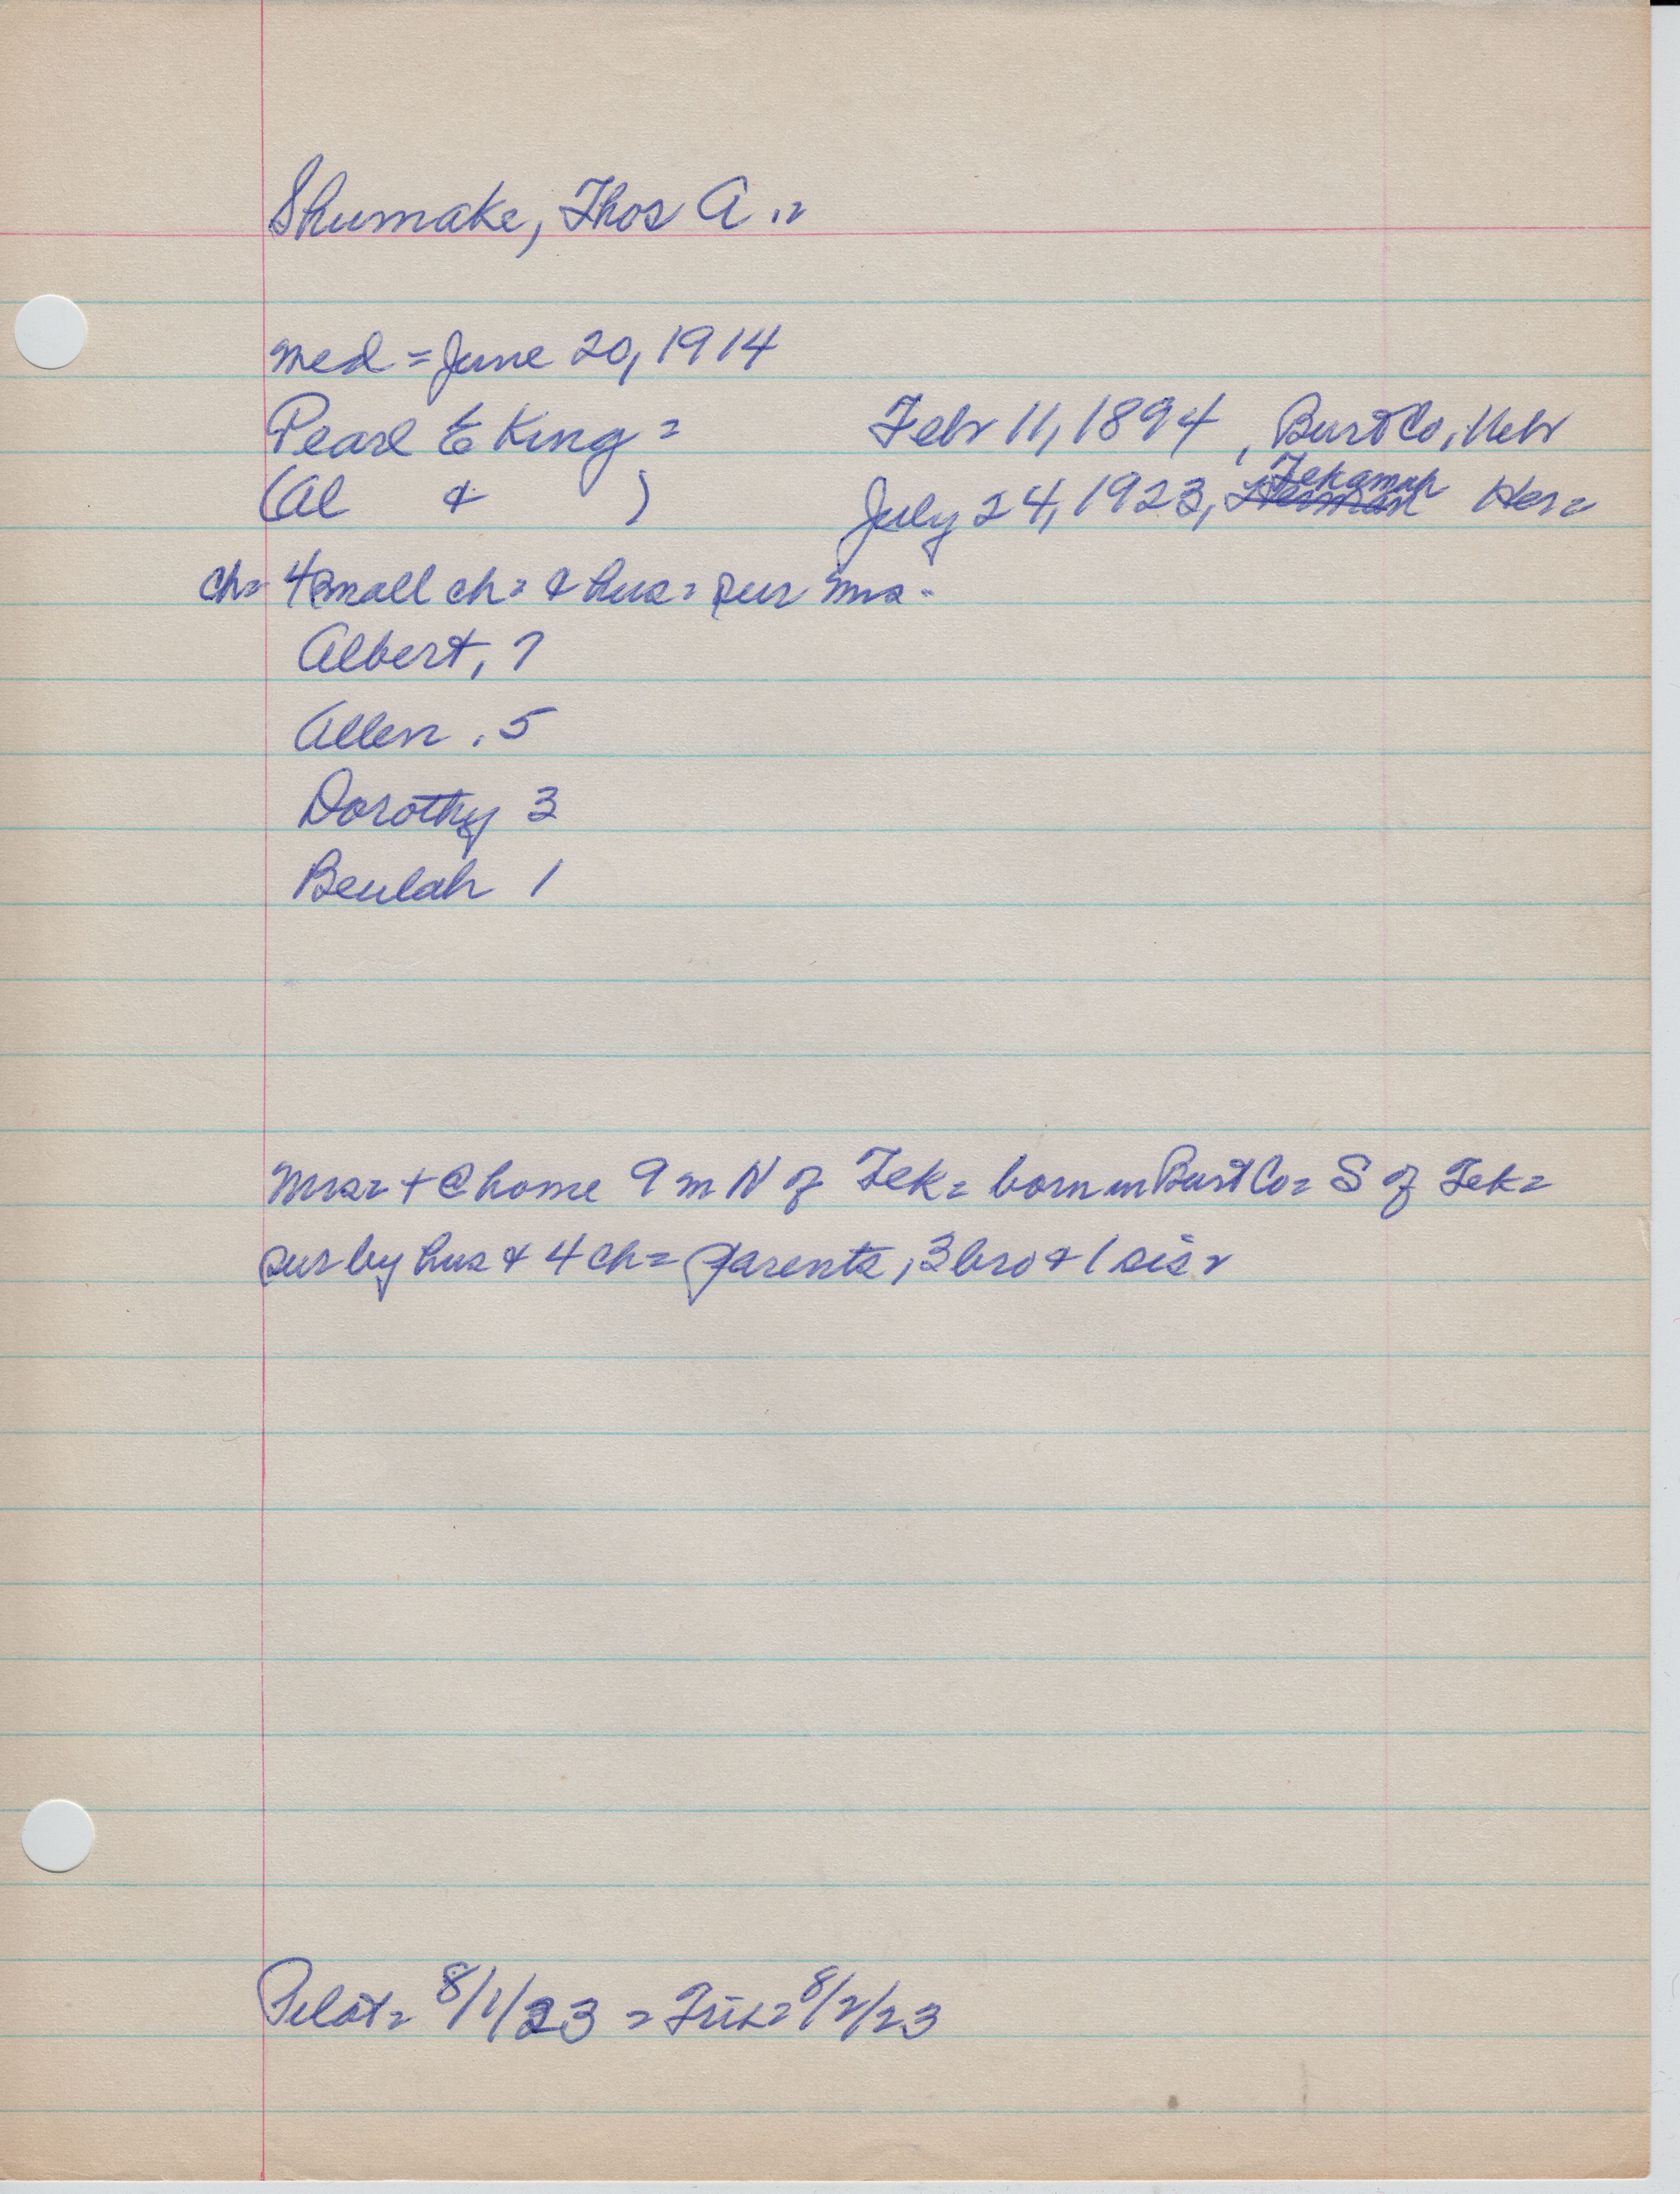 Shumake, Thos A. =
Med = June 20, 1914
Pearl E King = Febr 11, 1894, Burt Co, Nebr
(Al & ) July 24, 1923, Tekamah Her =
ch = 4 small ch = & hus = sur Mrs =
Albert, 7
Allen, 5
Dorothy 3
Beulah 1
Mrs = + @ home 9 m N of Tek = born in Burt Co = S of Tek =
sur by hus & 4 ch = parents, 3 bro & 1 sis =
Pilot = 8/1/23 = 8/2/23